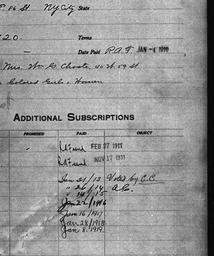 86 St NY City State
20. Terms
Date Paid P.A.F. JAN -4 1910
Mrs. Wm G. Choate, 40 W. 59 St.
Colored Girls & Women
ADDITIONAL SUBSCRIPTIONS
PROMISED PAID OBJECT
FEB 27 1911
NOV 17 1911
Jan 21/13 Voted by C.C.
" 26/14 A.C.
" 14/15
Jan 22/1916
Jan 16/1917
Jan 28/1918
Jan 8. 1919.